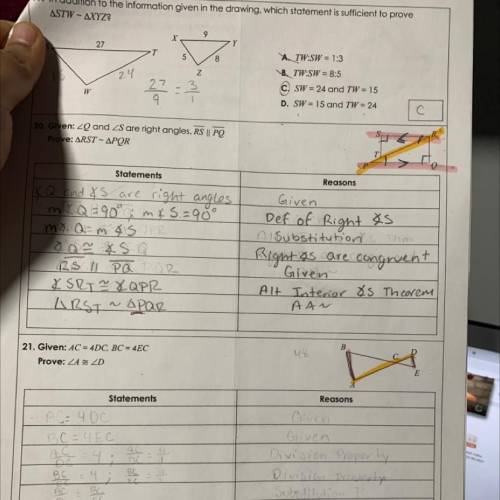 in addition to the information given in the drawing, which statement is sufficient to prove
△STW ~ △XYZ?
27
T
24
W
X
9
Y
5
8
Z
27/9 = 3/1
A. TW:SW = 1:3
B. TW:SW = 8:5
C. SW = 24 and TW = 15
D. SW = 15 and TW = 24
C
20. Given: ∠Q and ∠S are right angles, RS || PQ
Prove: △RST ~ △PQR
S
R
T
P
Q
Statements
Reasons
∡Q and ∡S are right angles
Given
m∡Q=90°; m∡S=90°
Def of Right ∡s
m∡Q= m∡S
Substitution
∡Q ≅ ∡S
Right ∡s are congruent
RS || PQ
Given
∡SRT ≅ ∡QPR
Alt Interior ∡s Theorem
△RST ~ △PQR
AA~
21. Given: AC = 4DC, BC = 4EC
Prove: ∠A ≅ ∠D
48
B
C
D
E
A
Statements
Reasons
AC = 4DC
Given
BC = 4EC
Given
= 4 ;
Division Property
= 4 ;
Division Property